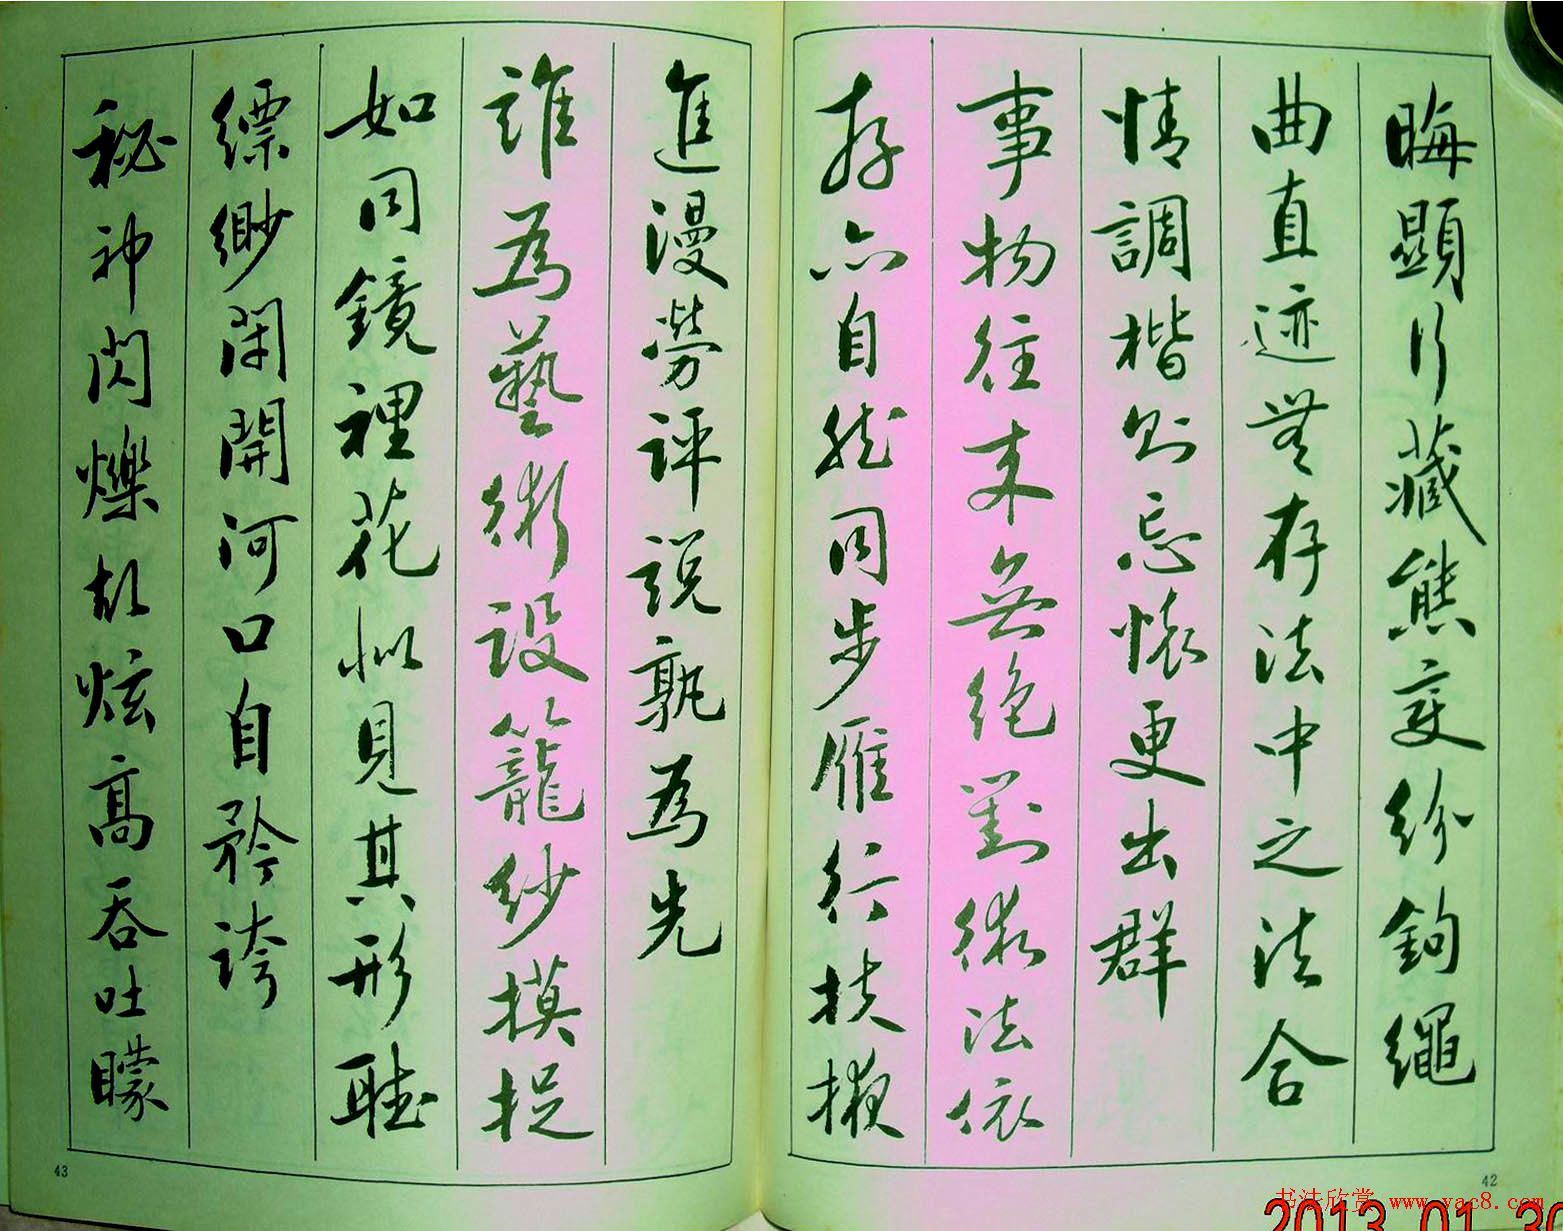 晦顯行藏態變紛鉤繩
曲直迹無存法中之法合
情調楷則忘懷更出群
事物從來無絕對術法依
存亦自然同步雁行扶掖
進漫勞評說孰為先
誰為藝術設籠紗摸捉
如同鏡裡花似見其形聽
縹緲閑開河口自矜誇
秘神閃爍故炫高吞吐矇
43
42
书法欣赏 www.yac8.com
2013 01 30